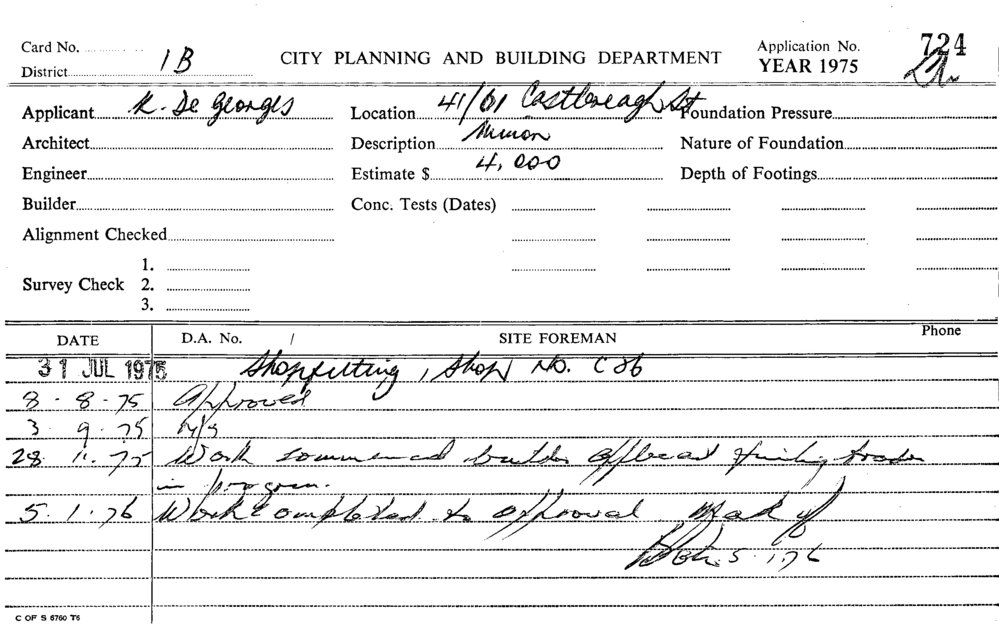 Card No.
District 1B
CITY PLANNING AND BUILDING DEPARTMENT
Application No. 724
YEAR 1975
Applicant K. De Georges
Location 41/61 Castlereagh St
Foundation Pressure
Architect
Description Minor
Nature of Foundation
Engineer
Estimate $ 4,000
Depth of Footings
Builder
Conc. Tests (Dates)
Alignment Checked
1.
Survey Check 2.
3.
DATE D.A. No. / SITE FOREMAN Phone
31 JUL 1975 Shopfitting, Shop No. C86
8 - 8 - 75 Approved
3 . 9 . 75 N/S
28 . 11 . 75 Work commenced builder trades
in progress.
5 . 1 . 76 Work completed to approval
5 . 1 . 76
C OF S 6760 T6